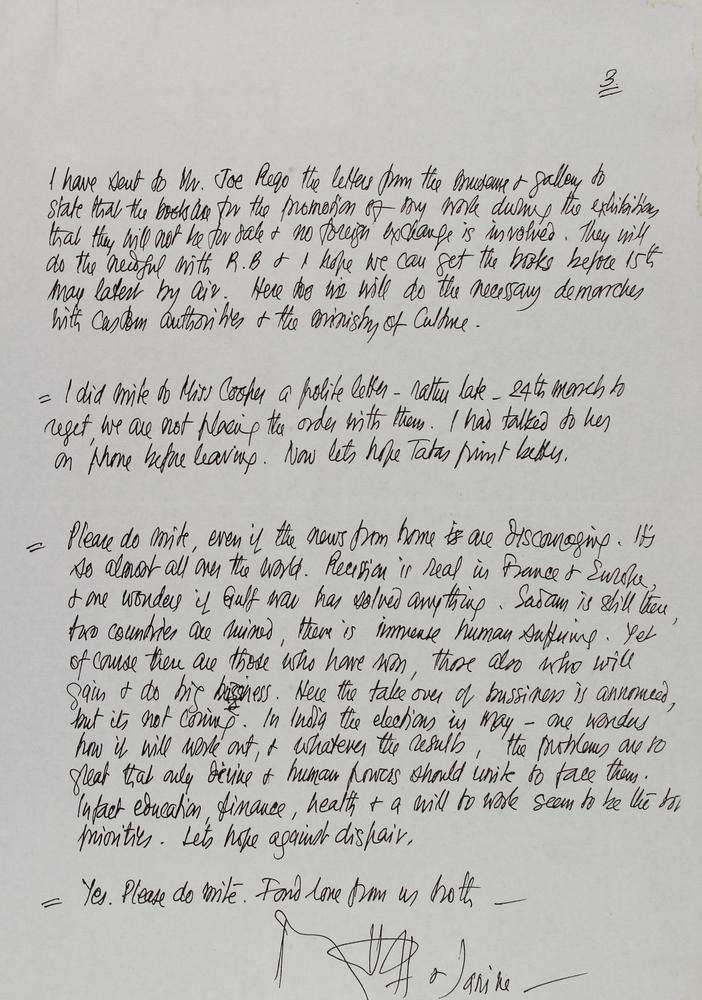 3
I have sent to Mr. Joe Rego the letters from the museum & gallery to
state that the books are for the promotion of my work during the exhibitions
that they will not be for sale & no foreign exchange is involved. They will
do the needful with R.B & I hope we can get the books before 15th
may latest by air. Here too we will do the necessary demarches
with Custom authorities & the ministry of Culture.
= I did write to Miss Cooper a polite letter - rather late - 24th march to
reget, we are not placing the order with them. I had talked to her
on phone before leaving. Now lets hope Tatas print better.
= Please do write, even if the news from home is are discouraging. It's
so almost all over the world. Recession is real in France & Europe,
& one wonders if Gulf war has solved anything. Sadam is still there,
two countries are ruined, there is immense human suffering. Yet
of course there are those who have won, those also who will
gain & do big business. Here the take over of bussiness is announced,
but its not coming. In India the elections in May - one wonders
how it will work out, & whatever the results, the problems are so
great that only divine & human powers should unite to face them.
Infact education, finance, health & a will to work seem to be the top
priorities. Lets hope against dispair.
= Yes. Please do write. Fond love from us both —
& Janine —